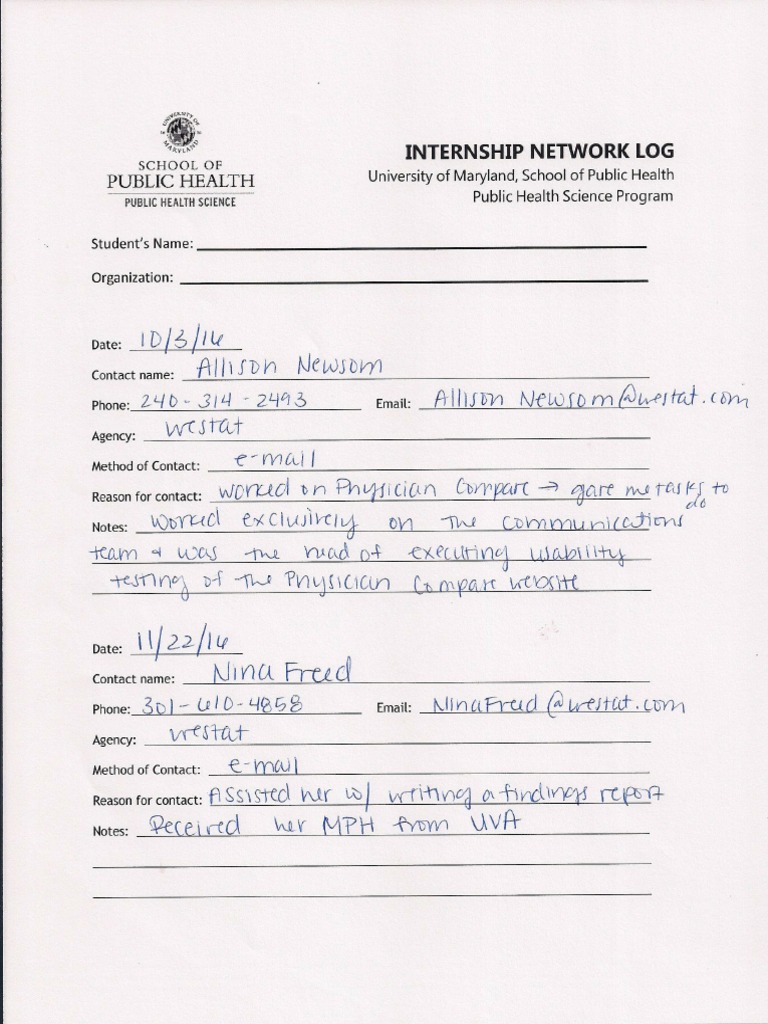 UNIVERSITY OF MARYLAND
SCHOOL OF
PUBLIC HEALTH
PUBLIC HEALTH SCIENCE
INTERNSHIP NETWORK LOG
University of Maryland, School of Public Health
Public Health Science Program
Student's Name:
Organization:
Date: 10/3/16
Contact name: Allison Newsom
Phone: 240-314-2493 Email: Allison Newsom@westat.com
Agency: Westat
Method of Contact: e-mail
Reason for contact: Worked on Physician Compare → gave me tasks to do
Notes: Worked exclusively on the communications
team & was the head of executing usability
testing of the Physician Compare website
Date: 11/22/16
Contact name: Nina Freed
Phone: 301-610-4858 Email: NinaFreed@westat.com
Agency: Westat
Method of Contact: e-mail
Reason for contact: Assisted her w/ writing a findings report
Notes: Received her MPH from UVA